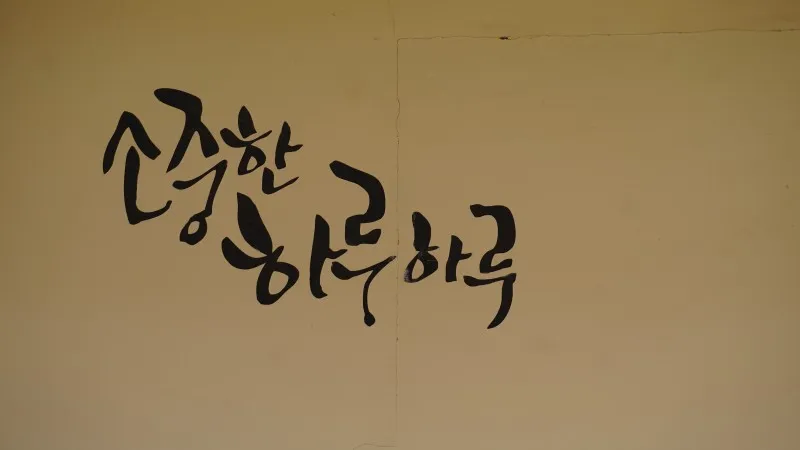 소중한
하루하루